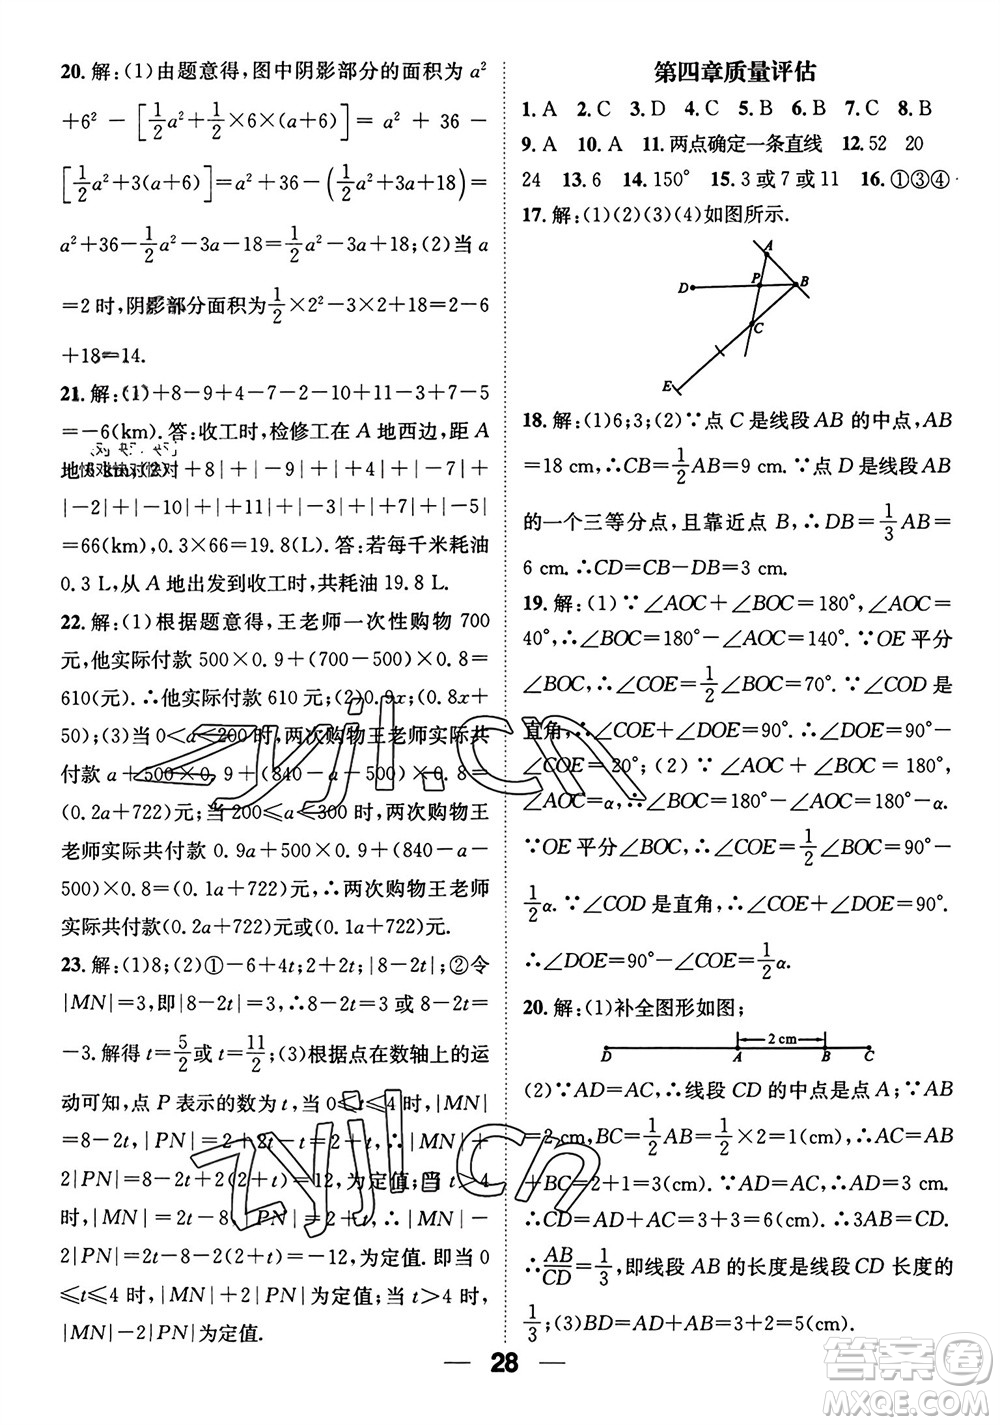 20. 解:(1)由题意得,图中阴影部分的面积为 a²
+6² − [1/2a²+1/2×6×(a+6)] = a² + 36 −
[1/2a²+3(a+6)]=a²+36−(1/2a²+3a+18)=
a²+36−1/2a²−3a−18=1/2a²−3a+18;(2)当 a
=2 时,阴影部分面积为1/2×2²−3×2+18=2−6
+18=14.
21. 解:(1)+8−9+4−7−2−10+11−3+7−5
=−6(km). 答:收工时,检修工在 A 地西边,距 A
地 6 km;(2)|+8|+|−9|+|+4|+|−7|+
|−2|+|−10|+|+11|+|−3|+|+7|+|−5|
=66(km),0.3×66=19.8(L). 答:若每千米耗油
0.3 L,从 A 地出发到收工时,共耗油 19.8 L.
22. 解:(1)根据题意得,王老师一次性购物 700
元,他实际付款 500×0.9+(700−500)×0.8=
610(元). ∴他实际付款 610 元;(2)0.9x;(0.8x+
50);(3)当 0<a<200 时,两次购物王老师实际共
付款 a+500×0.9+(840−a−500)×0.8=
(0.2a+722)元;当 200≤a<300 时,两次购物王
老师实际共付款 0.9a+500×0.9+(840−a−
500)×0.8=(0.1a+722)元,∴两次购物王老师
实际共付款(0.2a+722)元或(0.1a+722)元.
23. 解:(1)8;(2)①−6+4t;2t;|8−2t|;②令
|MN|=3,即|8−2t|=3,∴8−2t=3 或 8−2t=
−3. 解得 t=5/2或 t=11/2;(3)根据点在数轴上的运
动可知,点 P 表示的数为 t,当 0≤t≤4 时,|MN|
=8−2t,|PN|=2+2t−t=2+t,∴|MN|+
2|PN|=8−2t+2(2+t)=12,为定值;当 t>4
时,|MN|=2t−8,|PN|=2+t,∴|MN|−
2|PN|=2t−8−2(2+t)=−12,为定值. 即当 0
≤t≤4 时,|MN|+2|PN|为定值;当 t>4 时,
|MN|−2|PN|为定值.
第四章质量评估
1. A 2. C 3. D 4. C 5. B 6. B 7. C 8. B
9. A 10. A 11. 两点确定一条直线 12. 52 20
24 13. 6 14. 150° 15. 3 或 7 或 11 16. ①③④
17. 解:(1)(2)(3)(4)如图所示.
A
D P B
C
E
18. 解:(1)6;3;(2)∵点 C 是线段 AB 的中点,AB
=18 cm,∴CB=1/2AB=9 cm. ∵点 D 是线段 AB
的一个三等分点,且靠近点 B,∴DB=1/3AB=
6 cm. ∴CD=CB−DB=3 cm.
19. 解:(1)∵∠AOC+∠BOC=180°,∠AOC=
40°,∴∠BOC=180°−∠AOC=140°. ∵OE 平分
∠BOC,∴∠COE=1/2∠BOC=70°. ∵∠COD 是
直角,∴∠COE+∠DOE=90°. ∴∠DOE=90°−
∠COE=20°;(2)∵∠AOC+∠BOC=180°,
∠AOC=α,∴∠BOC=180°−∠AOC=180°−α.
∵OE 平分∠BOC,∴∠COE=1/2∠BOC=90°−
1/2α. ∵∠COD 是直角,∴∠COE+∠DOE=90°.
∴∠DOE=90°−∠COE=1/2α.
20. 解:(1)补全图形如图;
2 cm
D A B C
(2)∵AD=AC,∴线段 CD 的中点是点 A;∵AB
=2 cm,BC=1/2AB=1/2×2=1(cm),∴AC=AB
+BC=2+1=3(cm). ∵AD=AC,∴AD=3 cm.
∴CD=AD+AC=3+3=6(cm). ∴3AB=CD.
∴AB/CD=1/3,即线段 AB 的长度是线段 CD 长度的
1/3;(3)BD=AD+AB=3+2=5(cm).
28
zyjl.cn
zyjl.cn
答案圈
MXQE.COM